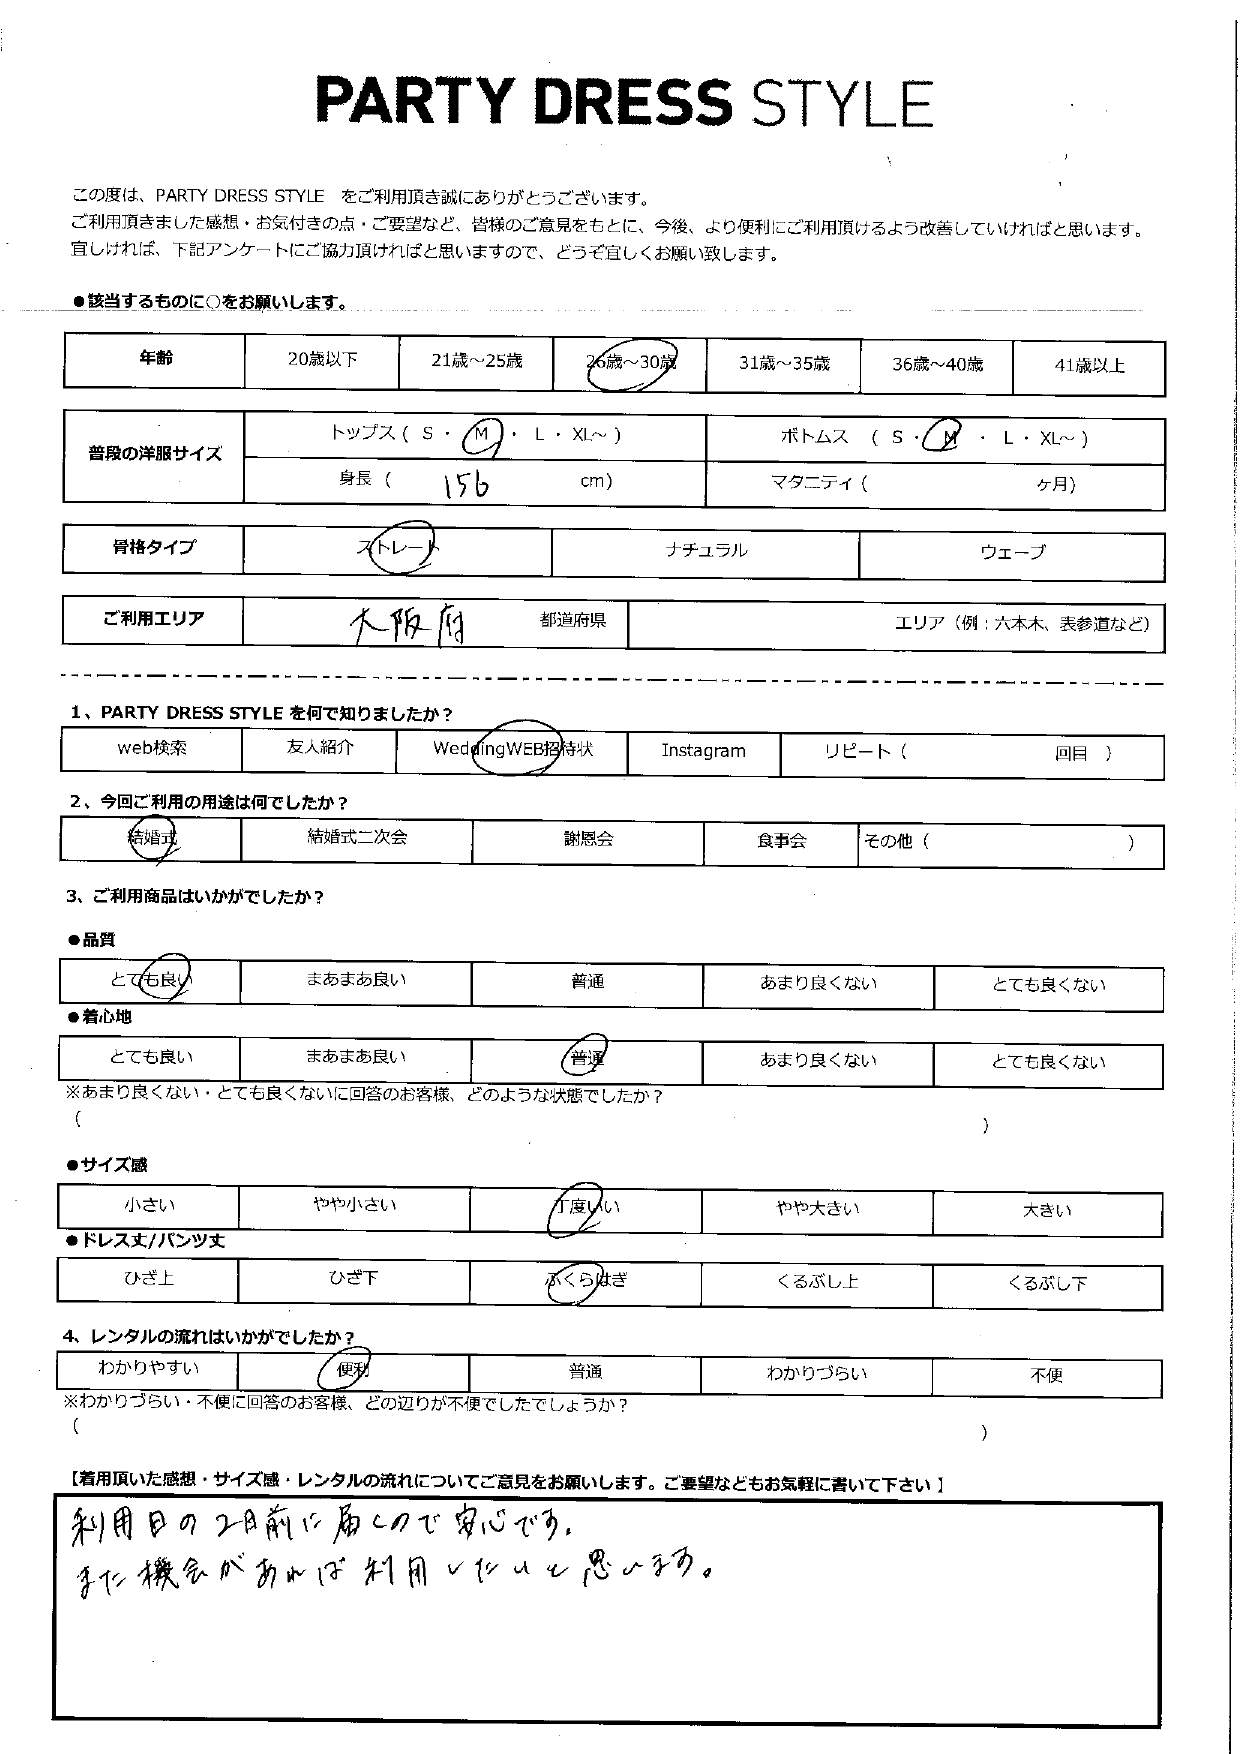 PARTY DRESS STYLE
この度は、PARTY DRESS STYLE をご利用頂き誠にありがとうございます。
ご利用頂きました感想・お気付きの点・ご要望など、皆様のご意見をもとに、今後、より便利にご利用頂けるよう改善していければと思います。
宜しければ、下記アンケートにご協力頂ければと思いますので、どうぞ宜しくお願い致します。
●該当するものに○をお願いします。
年齢 20歳以下 21歳～25歳 26歳～30歳 31歳～35歳 36歳～40歳 41歳以上
普段の洋服サイズ トップス ( S ・ M ・ L ・ XL～ ) ボトムス ( S ・ M ・ L ・ XL～ )
身長 ( 156 cm) マタニティ ( ヶ月)
骨格タイプ ストレート ナチュラル ウェーブ
ご利用エリア 大阪府 都道府県 エリア（例：六本木、表参道など）
1、PARTY DRESS STYLE を何で知りましたか？
web検索 友人紹介 WeddingWEB招待状 Instagram リピート ( 回目 )
2、今回ご利用の用途は何でしたか？
結婚式 結婚式二次会 謝恩会 食事会 その他 ( )
3、ご利用商品はいかがでしたか？
●品質
とても良い まあまあ良い 普通 あまり良くない とても良くない
●着心地
とても良い まあまあ良い 普通 あまり良くない とても良くない
※あまり良くない・とても良くないに回答のお客様、どのような状態でしたか？
( )
●サイズ感
小さい やや小さい 丁度いい やや大きい 大きい
●ドレス丈/パンツ丈
ひざ上 ひざ下 ふくらはぎ くるぶし上 くるぶし下
4、レンタルの流れはいかがでしたか？
わかりやすい 便利 普通 わかりづらい 不便
※わかりづらい・不便に回答のお客様、どの辺りが不便でしたでしょうか？
( )
【着用頂いた感想・サイズ感・レンタルの流れについてご意見をお願いします。ご要望などもお気軽に書いて下さい】
利用日の2日前に届くので安心です。
また機会があれば利用したいと思います。